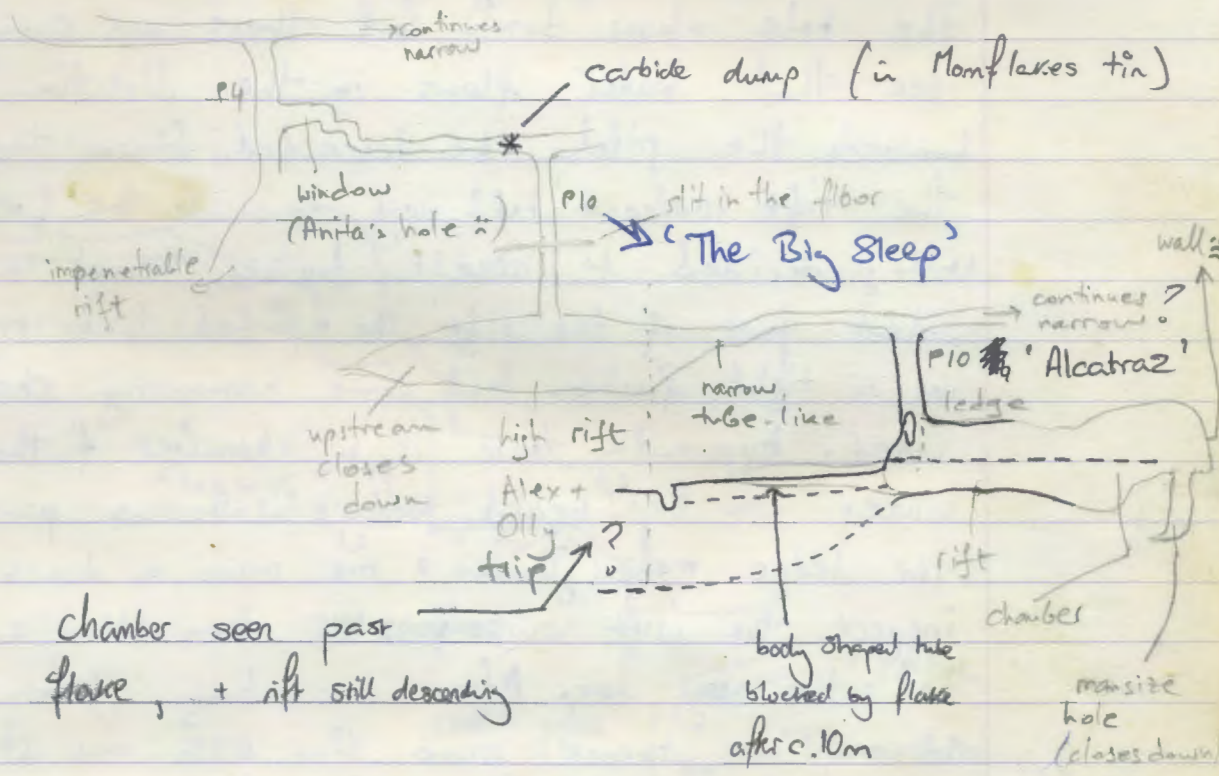 →continues
narrow
carbide dump (in Mornflakes tin)
P4
window
(Anita's hole)
P10
slit in the floor
'The Big Sleep'
wall
impenetrable
rift
continues ?
narrow
P10 'Alcatraz'
ledge
narrow
tube-like
upstream
closes
down
high rift
Alex +
Olly
trip
?
rift
chamber
Chamber seen past
flake, + rift still descending
body shaped tube
blocked by flake
after c.10m
mansize
hole
(closes down